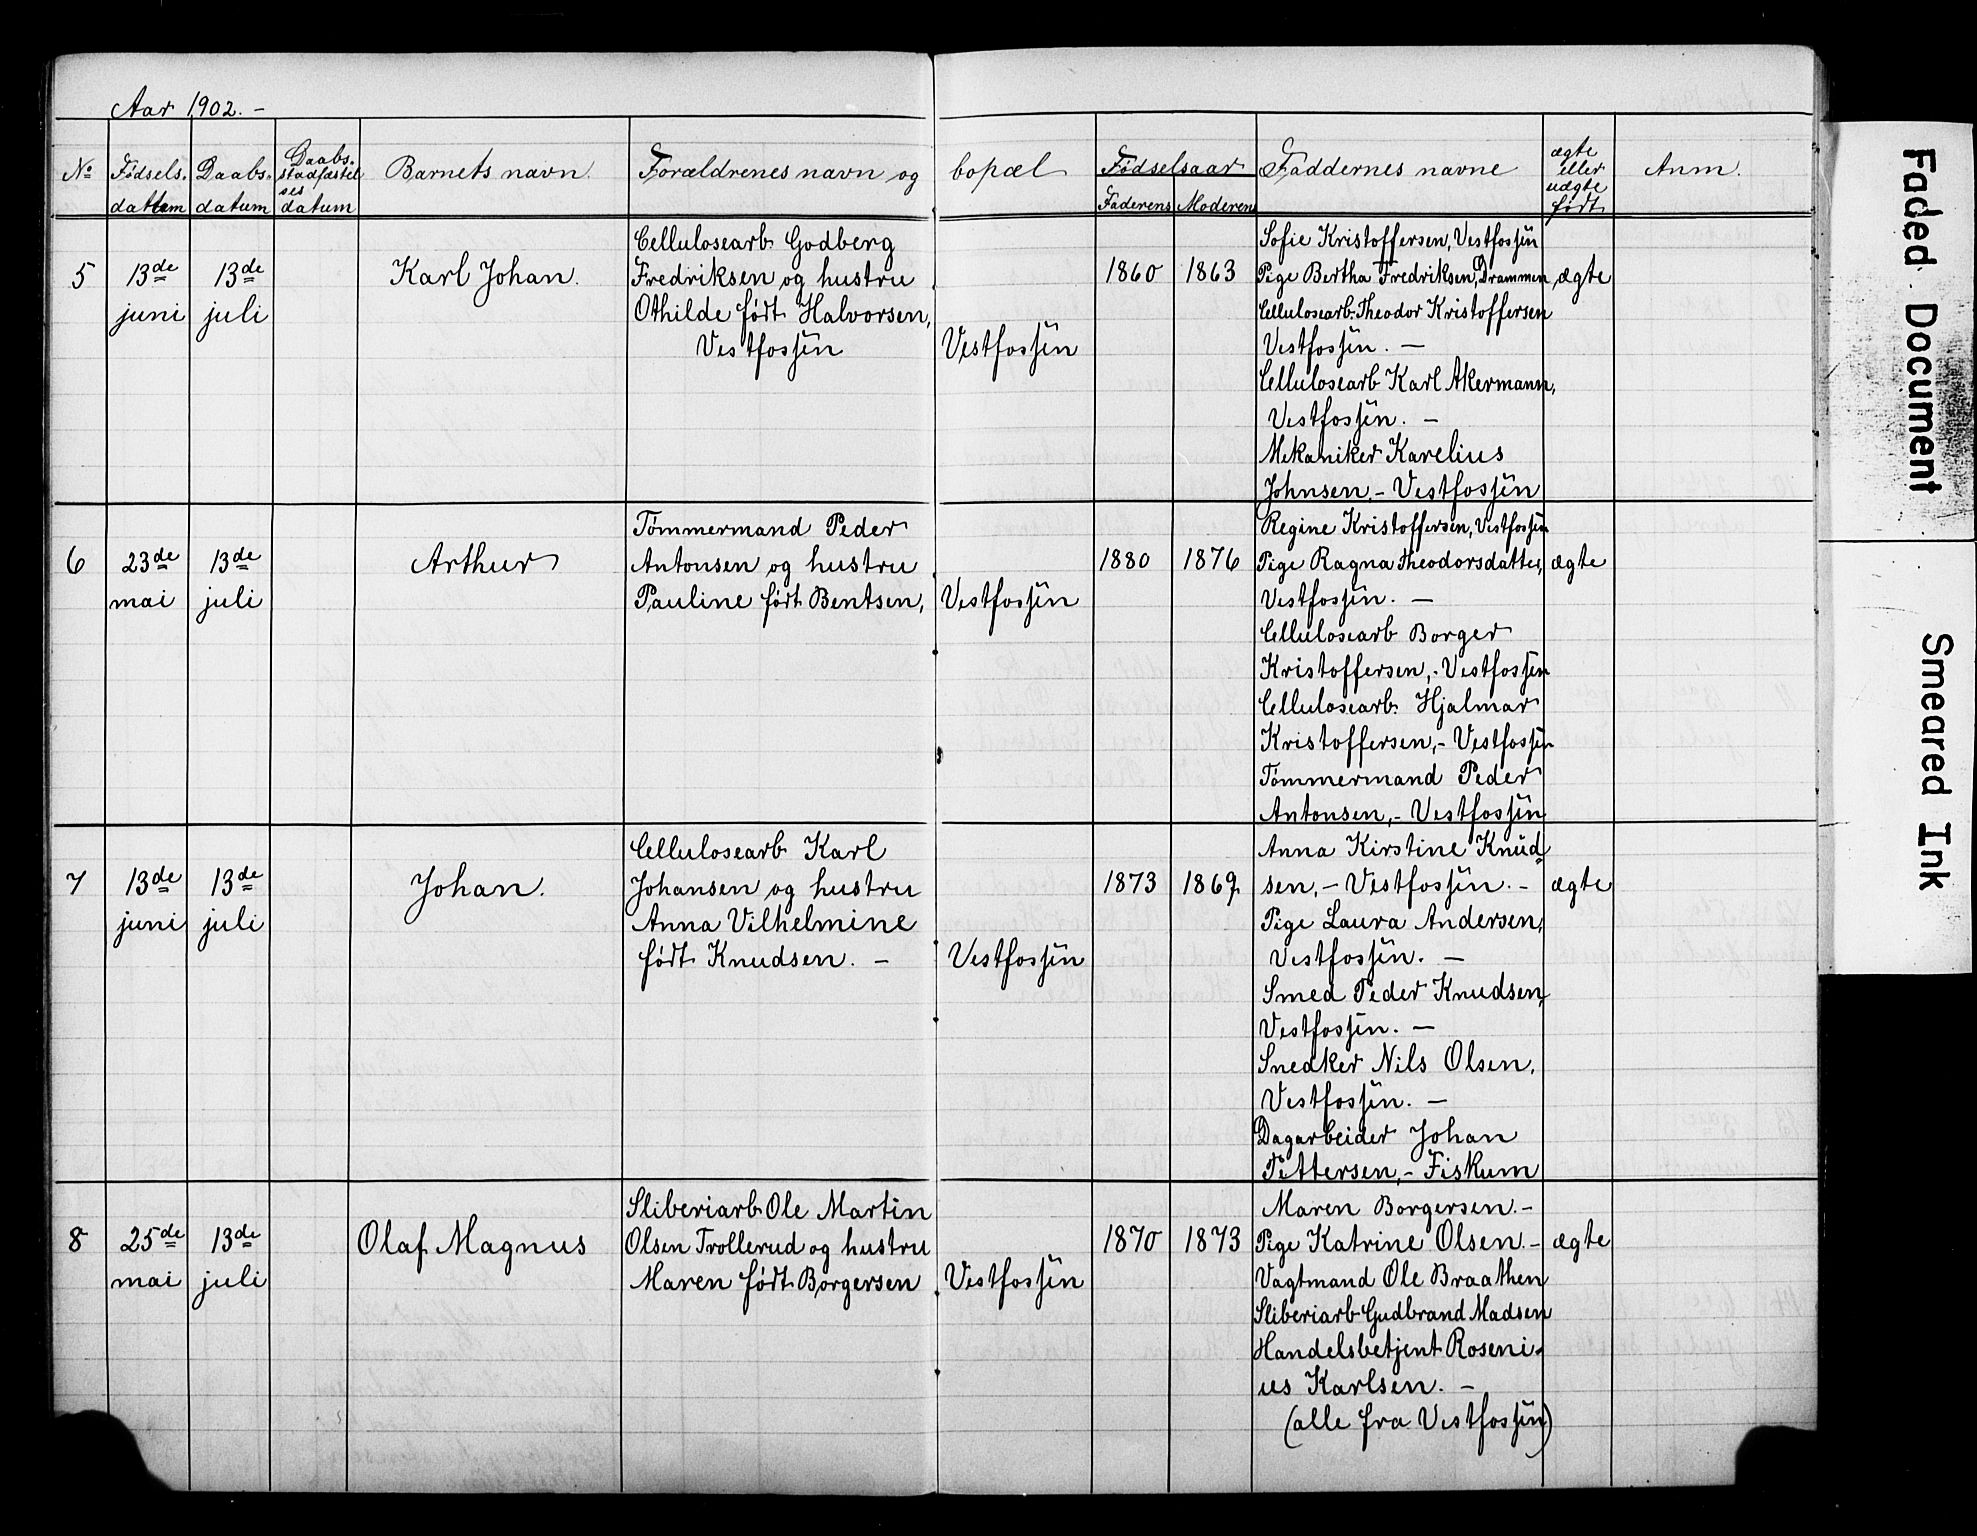 Aar 1902. –
No
Fødsels-
datum
Daabs-
datum
Daabs-
stadfæstel
ses
datum
Barnets navn.
Forældrenes navn og
bopæl
Fødselsaar
Faderens
Moderens
Faddernes navne
ægte
eller
uægte
født
Anm.
5
13de
juni
13de
juli
Karl Johan.
Cellulosearb Godberg
Fredriksen og hustru
Othilde født Halvorsen,
Vestfossen
Vestfossen
1860
1863
Sofie Kristoffersen, Vestfossen
Pige Bertha Fredriksen, Drammen
Cellulosearb. Theodor Kristoffersen
Vestfossen. –
Cellulosearb Karl Akermann,
Vestfossen. –
Mekaniker Karelius
Johnsen, – Vestfossen
ægte
6
23de
mai
13de
juli
Arthur
Tømmermand Peder
Antonsen og hustru
Pauline født Bentsen,
Vestfossen
1880
1876
Regine Kristoffersen, Vestfossen
Pige Ragna Theodorsdatter,
Vestfossen. –
Cellulosearb Borger
Kristoffersen, - Vestfossen
Cellulosearb. Hjalmar
Kristoffersen, - Vestfossen
Tømmermand Peder
Antonsen, - Vestfossen
ægte
7
13de
juni
13de
juli
Johan.
Cellulosearb Karl
Johansen og hustru
Anna Vilhelmine
født Knudsen. –
Vestfossen
1873
1869
Anna Kirstine Knud-
sen, – Vestfossen. –
Pige Laura Andersen,
Vestfossen. –
Smed Peder Knudsen,
Vestfossen. –
Snedker Nils Olsen,
Vestfossen. –
Dagarbeider Johan
Pettersen, - Fiskum
ægte
8
25de
mai
13de
juli
Olaf Magnus
Sliberiarb Ole Martin
Olsen Trollerud og hustru
Maren født Borgersen
Vestfossen
1870
1873
Maren Borgersen. –
Pige Katrine Olsen. –
Vagtmand Ole Braathen
Sliberiarb Gudbrand Madsen
Handelsbetjent Roseni-
us Karlsen. –
(alle fra Vestfossen)
ægte
Faded Document
Smeared Ink